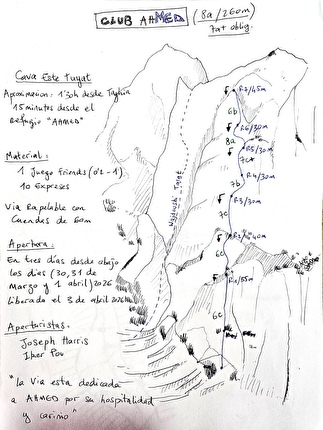 CLUB AHMED (8a/260m)
7a+ oblig.
Cara Este Tuyat
Aproximacion: 1'30h desde Taghia
15 minutos desde el
Refugio "AHMED"
Material:
1 Juego Friends (0'2-1)
10 Expreses
Via Rapelable con
Cuerdas de 60m
Apertura:
En tres días desde abajo
los días (30, 31 de
Marzo y 1 abril) 2026
Liberada el 3 de abril 2026
Aperturistas.
Joseph Harris
Iker Pou
"la Via esta dedicada
a AHMED por su hospitalidad
y cariño"
R7/45m
6b
R6/30m
8a
R5/30m
7c+
R4/30m
7b
R3/30m
7c
40m
6c
R1/55m
6c